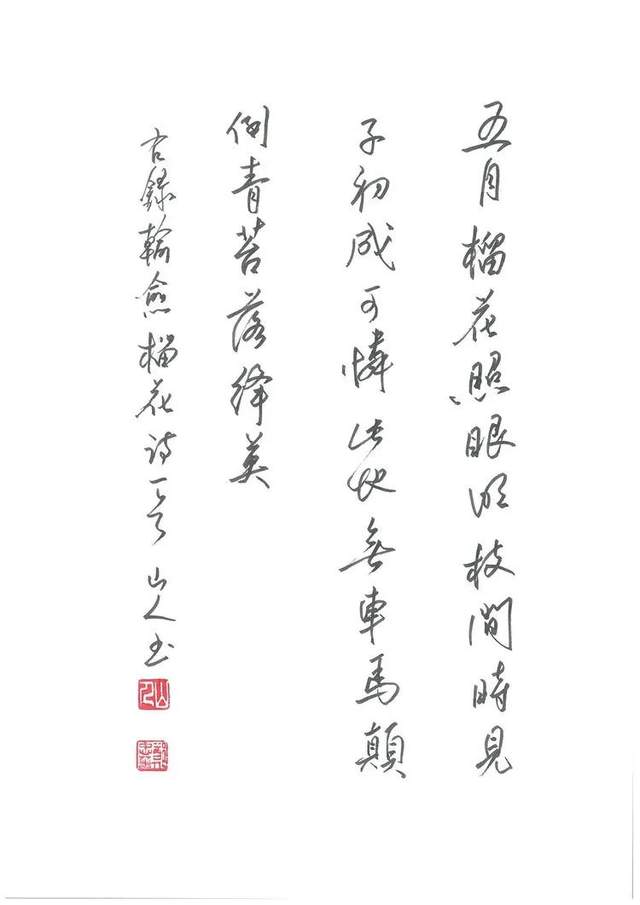 五月榴花照眼明枝間時見
子初成可憐此地無車馬顛
倒青苔落絳英
右錄韓愈榴花詩一首 山人書
山人